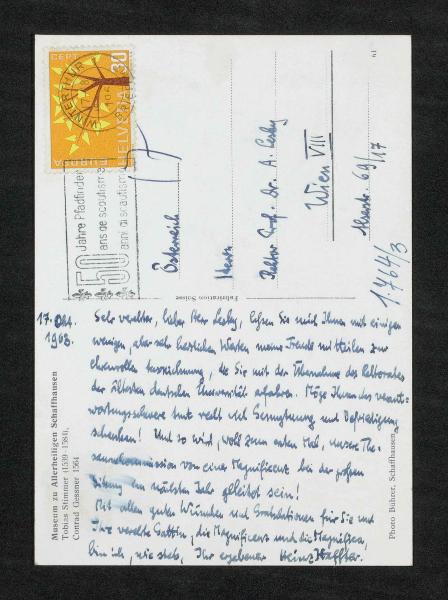 WINTERTHUR
CEPT
30
HELVETIA
EUROPA
50
Jahre Pfadfinder
ans de scoutisme
anni di scoutismo
Österreich
Herrn
Rektor Prof. Dr. A. Lesky
Wien VIII
69/17
1764/3
Fabrication Suisse
17. Okt.
1963.
Sehr verehrter, lieber Herr Lesky, lassen Sie mich Ihnen mit einigen
wenigen, aber sehr herzlichen Worten meine Freude mitteilen zur
ehrenvollen Auszeichnung, die Sie mit der Übernahme des Rektorates
der ältesten deutschen Universität erfahren. Möge Ihnen das verant-
wortungsschwere Amt recht viel Genugtuung und Befriedigung
schenken! Und so wird, wohl zum ersten Mal, unsere The-
sauruskommission von einer Magnifizenz bei der großen
Sitzung im nächsten Jahr geleitet sein!
Mit allen guten Wünschen und Gratulationen für Sie und
Ihre verehrte Gattin, die Magnifizenz und die Magnifica,
bin ich, wie stets, Ihr ergebener Heinz Haffter.
Museum zu Allerheiligen Schaffhausen
Tobias Stimmer (1539–1584),
Conrad Gessner 1564
Photo Bührer, Schaffhausen